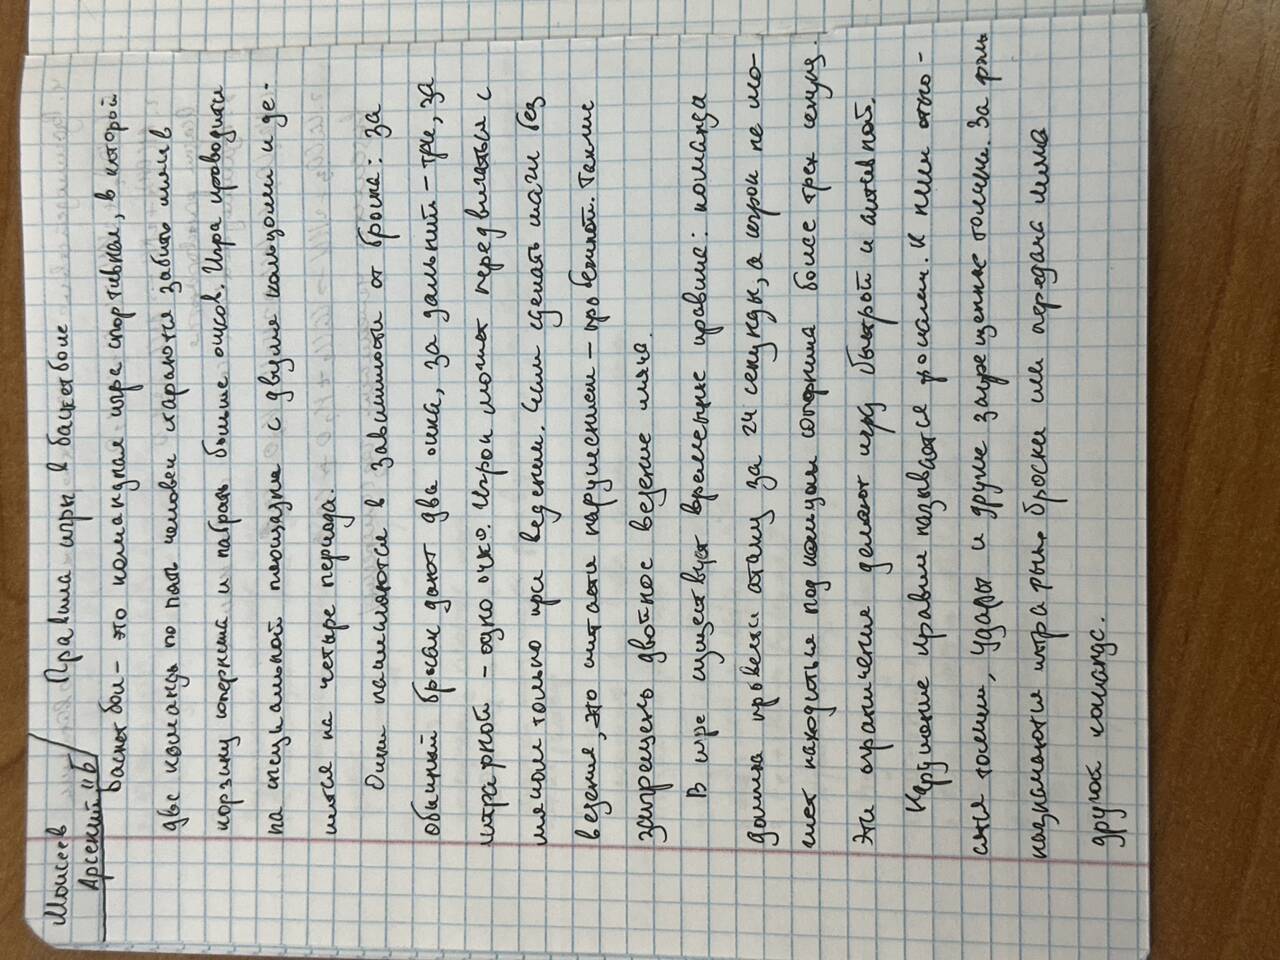 Моисеев
Арсений "Б"
Правила игры в баскетболе
Баскетбол - это командная игра спортивная, в которой
две команды по пять человек стараются забить мяч в
корзину соперника и набрать больше очков. Игра проводится
на специальной площадке с двумя кольцами и де-
лится на четыре периода.
Очки начисляются в зависимости от броска: за
обычный бросок дают два очка, за дальний - три, за
штрафной - одно очко. Игрок может передвигаться с
мячом только при ведении. Если сделать шаги без
ведения, это читается нарушением - пробежкой. Также
запрещено двойное ведение мяча.
В игре существуют временные правила: команда
должна провести атаку за 24 секунды, а игрок не мо-
жет находиться под кольцом соперника более трех секунд.
Эти ограничения делают игру быстрой и активной.
Нарушение правил называется фолами. К ним отно-
сятся толчки, удары и другие запрещенные толчки. За фолы
назначаются штрафные броски или передача мяча
другой команде.